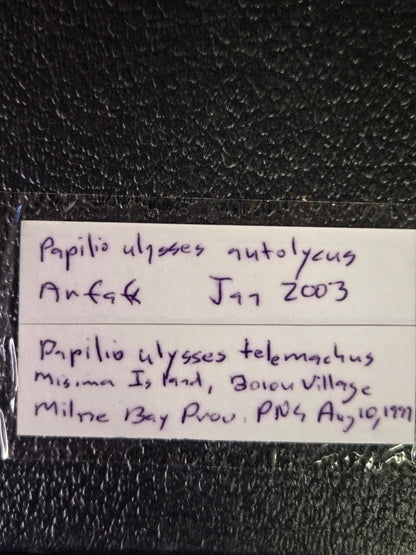 Papilio ulysses autolycus
Arfak Jan 2003
Papilio ulysses telemachus
Misima Island, Boiou Village
Milne Bay Prov. PNG Aug 10, 1997